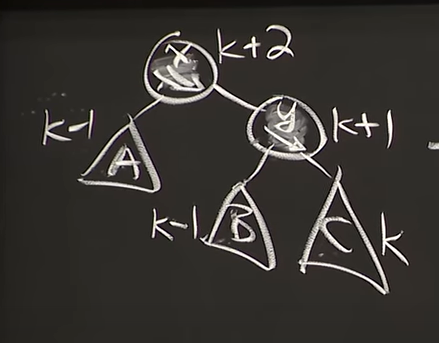 x k+2
k-1 A y k+1
k-1 B C k